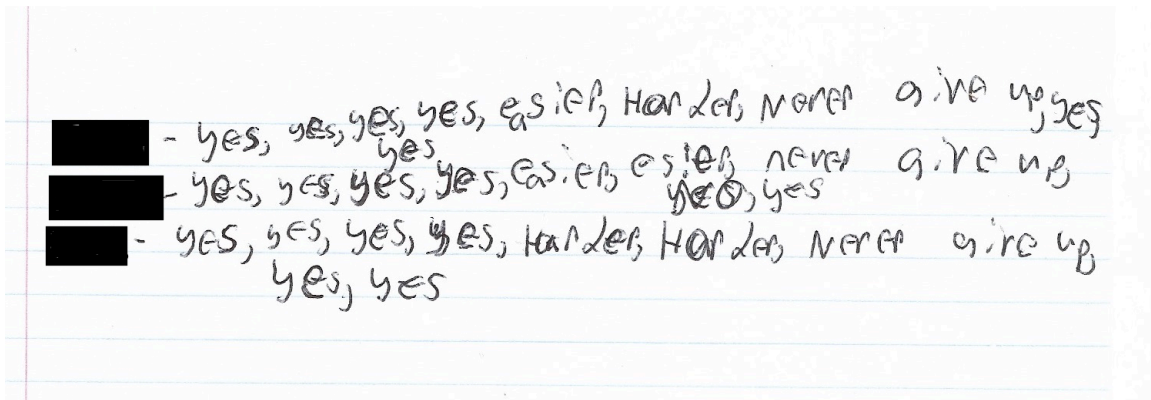 - yes, yes, yes, yes, easier, Harder, Never give up, yes,
yes
- yes, yes, yes, yes, easier, easier, never give up,
yes, yes
- yes, yes, yes, yes, Harder, Harder, Never give up,
yes, yes